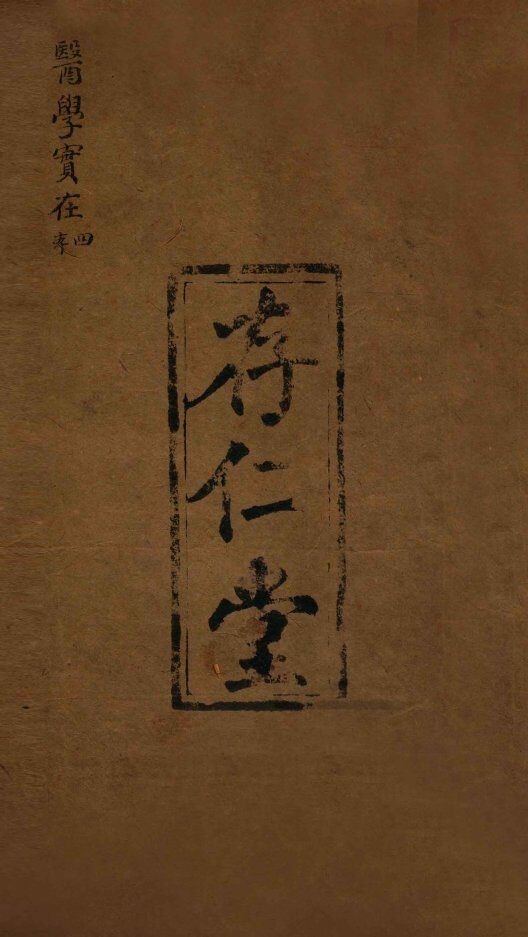 醫學實在
四
存仁堂